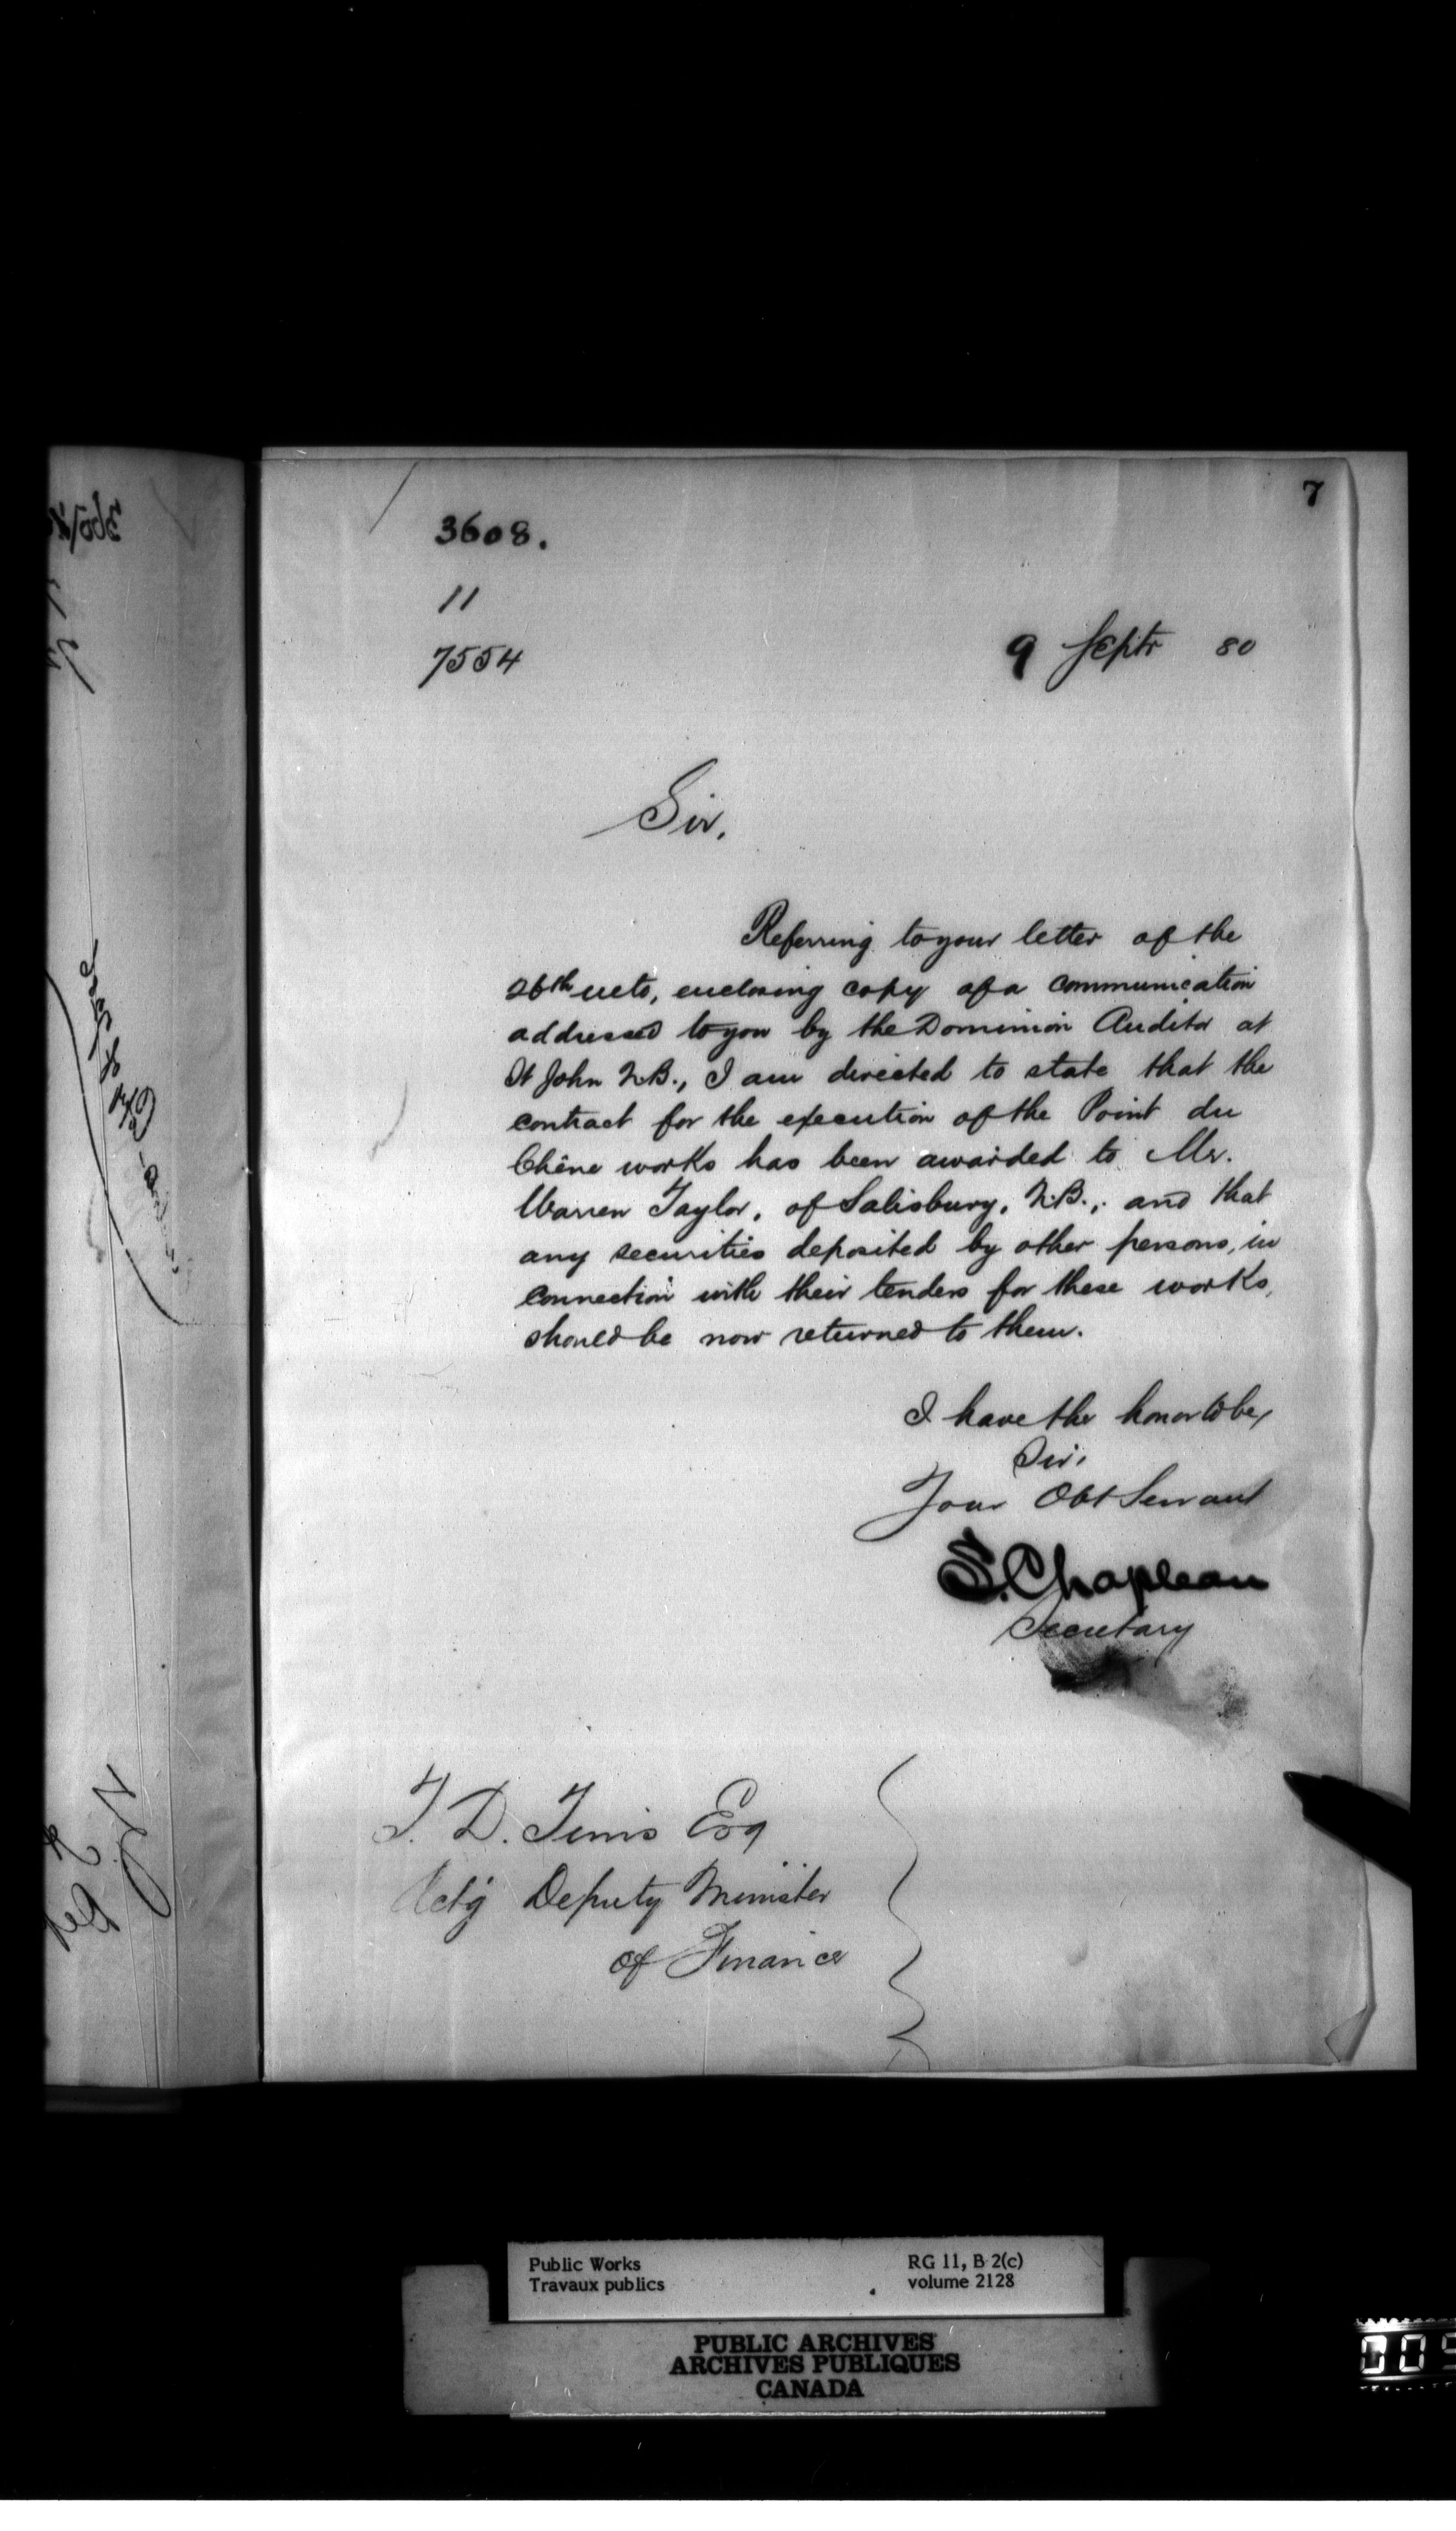 7
3608.
11
7554
9 Septr 80
Sir,
Referring to your letter of the
26th ulto, enclosing copy of a communication
addressed to you by the Dominion Auditor at
St John N.B., I am directed to state that the
contract for the execution of the Point du
Chêne works has been awarded to Mr.
Warren Taylor, of Salisbury, N.B., and that
any securities deposited by other persons, in
connection with their tenders for these works,
should be now returned to them.
I have the honor to be,
Sir,
Your Obt Servant
S. Chapleau
Secretary
T. D. Tims Esq
Actg Deputy Minister
of Finance
Public Works
Travaux publics
RG 11, B 2(c)
volume 2128
PUBLIC ARCHIVES
ARCHIVES PUBLIQUES
CANADA